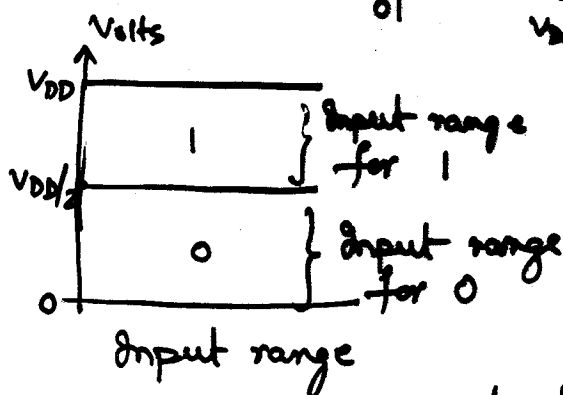 01
Volts
VDD
1
Input range
for 1
VDD/2
0
Input range
for 0
0
Input range